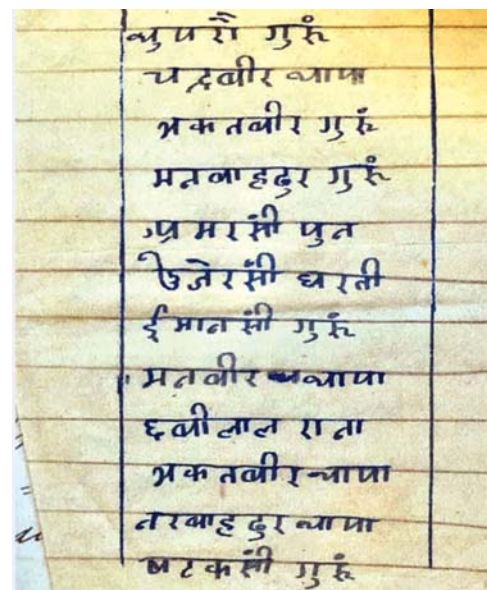 थुपरौ गुरूं
चद्रबीर थापा
भकतबीर गुरूं
मनबाहदुर गुरूं
अमरसीं पुन
उजेरसीं घरती
ईमानसीं गुरूं
मनबीर थापा
छबीलाल राना
भकतबीर थापा
नरबाहदुर थापा
षटकसीं गुरूं